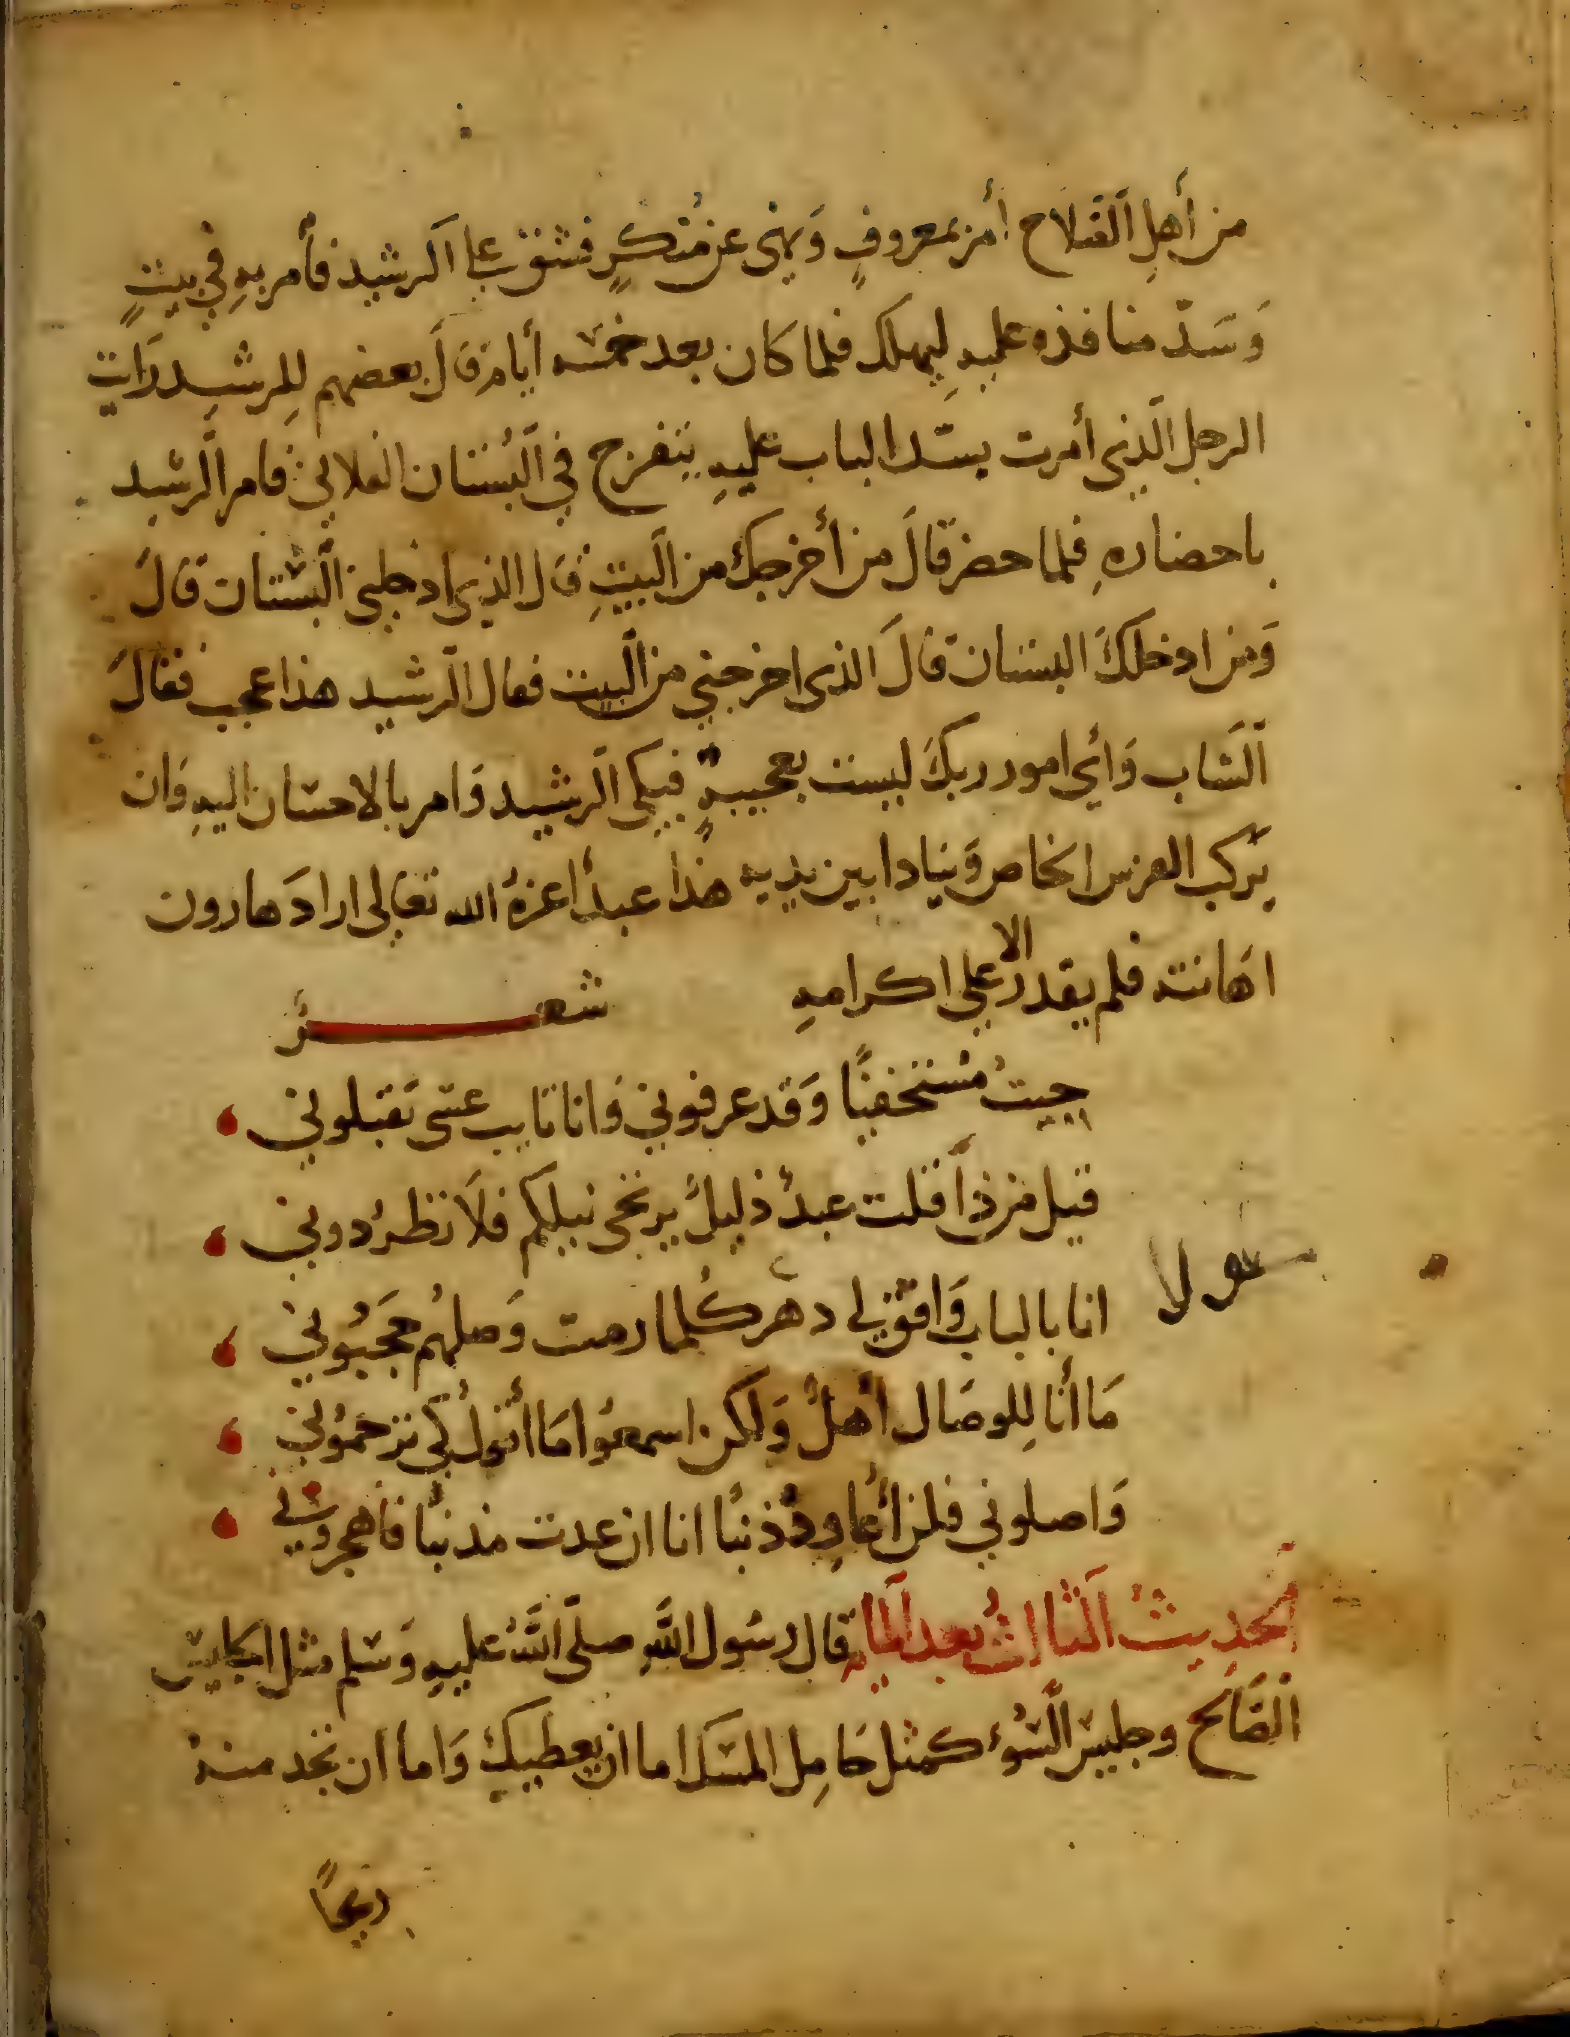 من أهل الفلاح أمر بمعروفٍ وَنهى عن مُنكرٍ فشق على الرشيد فأمر بهِ في بيتٍ
وَسَدّ منافذه عليهِ ليهلك فلما كان بعد خمسه أيام قالَ بعضهم لِلرشيد رَايت
الرجل الّذي أمرت بسّد الباب عليهِ يتفرج في البُستان الفلاني فامر الّرشيد
باحضارهِ فلما حضر قالَ من أخرجك من الَبيتِ قال الذي ادخلني الّبستان قالَ
وَمن ادخلكَ البستان قالَ الذي اخرجني من الّبيت فقال الّرشيد هذا عجب فقالَ
الَشاب وَأي امور ربكَ ليست بعجيبةٍ فبكى الّرشيد وَامر بالاحسان اليهِ وَان
يركب الفرس الخاص وَينادا بين يديه هذا عبدٌ اعزهُ الله تعَالى ارادَ هارون
اهَانته فلم يقدر الا على اكرامهِ شعــــر
جيتُ مُستخفيًا وَقد عرفوني وَانا تايب عسَى تقبلوني
قيل من ذا قلت عبدٌ ذليلٌ يرتجى نيلكم فلَا تطرُدوني
انا بالباب وَاقف لي دهر كُلما رمت وَصلهُم حجَبُوني
مَا أنَا لِلوصَال اهلٌ وَلكن اسمعوُا مَا أقولُ كَي ترحموُني
وَاصلوني فلن أُعاود ذنبًا انا ان عدت مذنبًا فأهجروني
الحَديثُ الَثالثُ بعد المايه قال رسُول اللَّهِ صلّى اللَّهُ عليهِ وَسَلم مثل الجليس
الصَّالح وجليس السُّوء كمثل حَامِل المسك اما ان يعطيك وَاما ان تجد منهُ
ريحًا